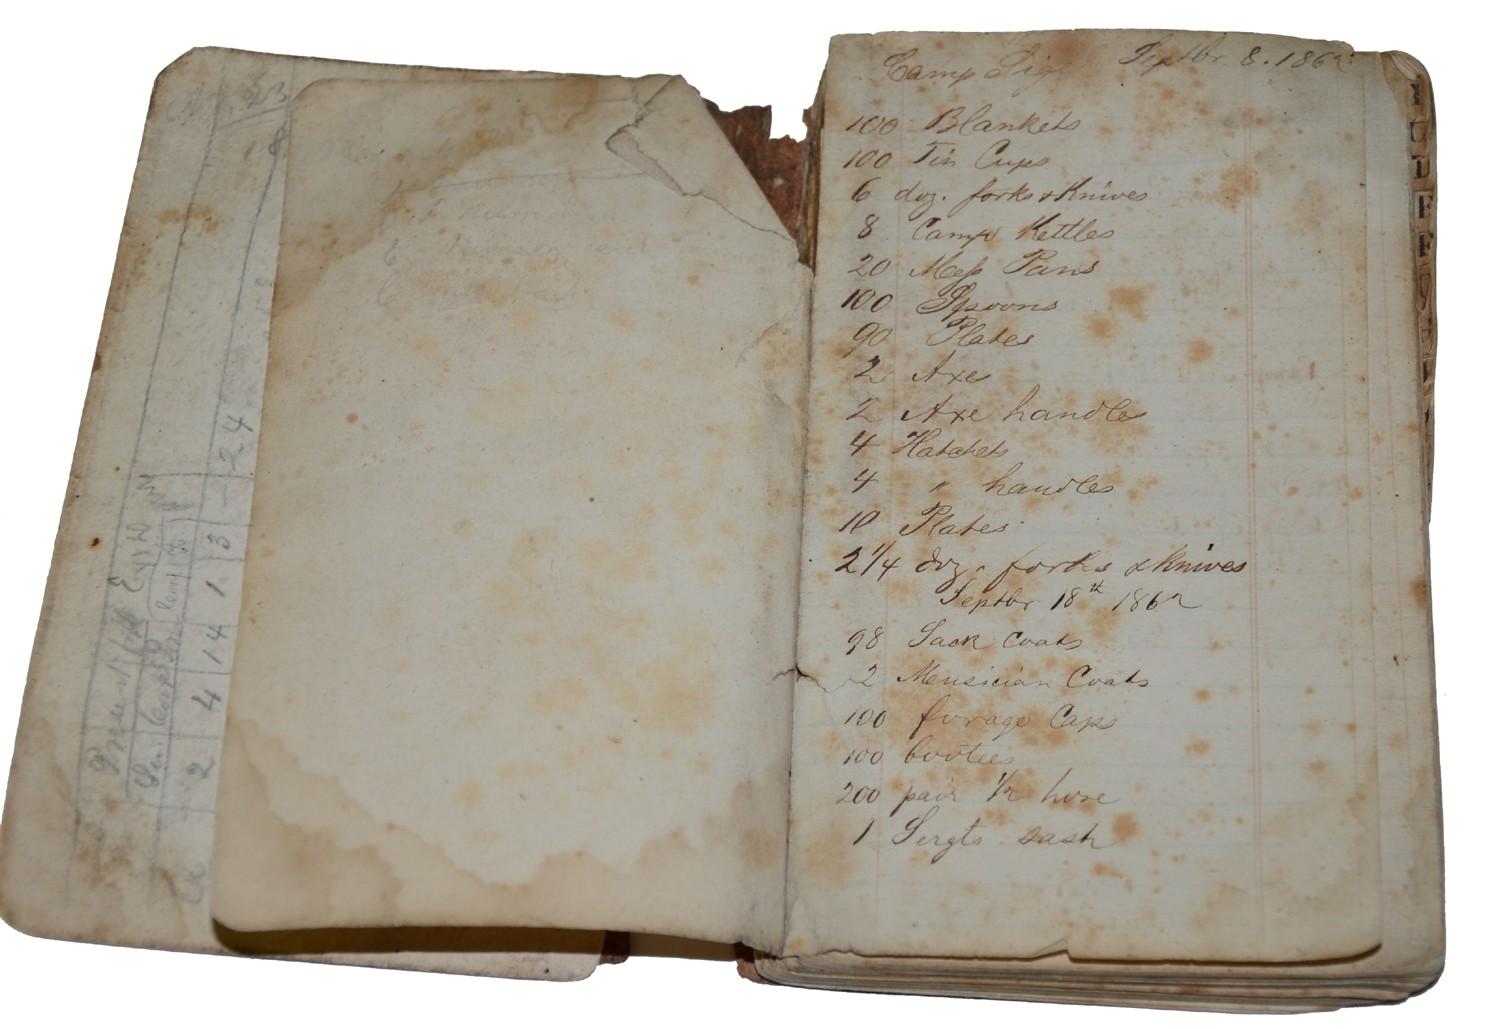 Camp Rig Septbr 8. 1862
100 Blankets
100 Tin Cups
6 doz. forks & Knives
8 Camp Kettles
20 Mess Pans
100 Spoons
90 Plates
2 Axes
2 Axe handles
4 Hatchets
4 " handles
10 Plates
2 1/4 doz. forks & Knives
Septbr 18th 1862
98 Sack Coats
2 Mensician Coats
100 forage Caps
100 bootees
200 pair 1/2 hose
1 Sergts sash
Present
2 4 14 1 3 - 24